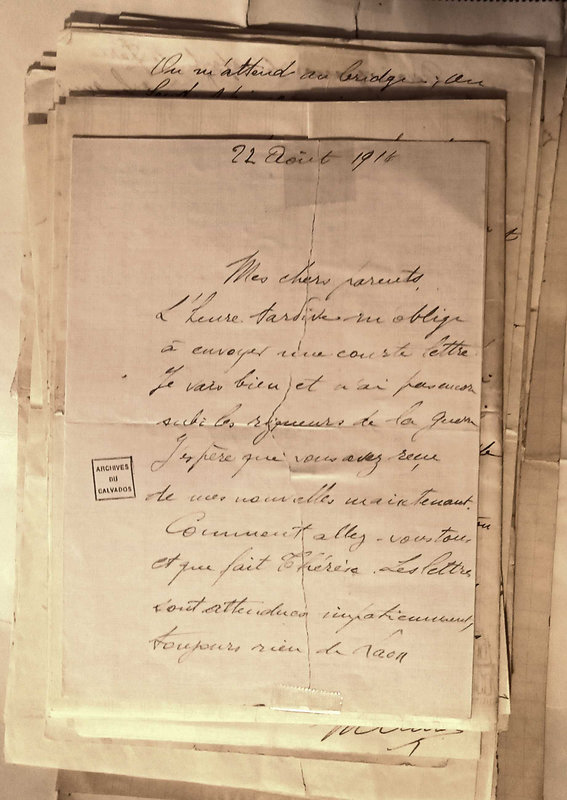 On m'attend au bridge. On
22 Août 1916
Mes chers parents,
L'heure tardive m'oblige
à envoyer une courte lettre
Je vais bien et n'ai pas encore
subi les rigueurs de la guerre
J'espère que vous avez reçu
de mes nouvelles maintenant.
Comment allez-vous tous
et que fait Thérèse. Les lettres
sont attendues impatiemment,
toujours rien de Laon
ARCHIVES
DU
CALVADOS